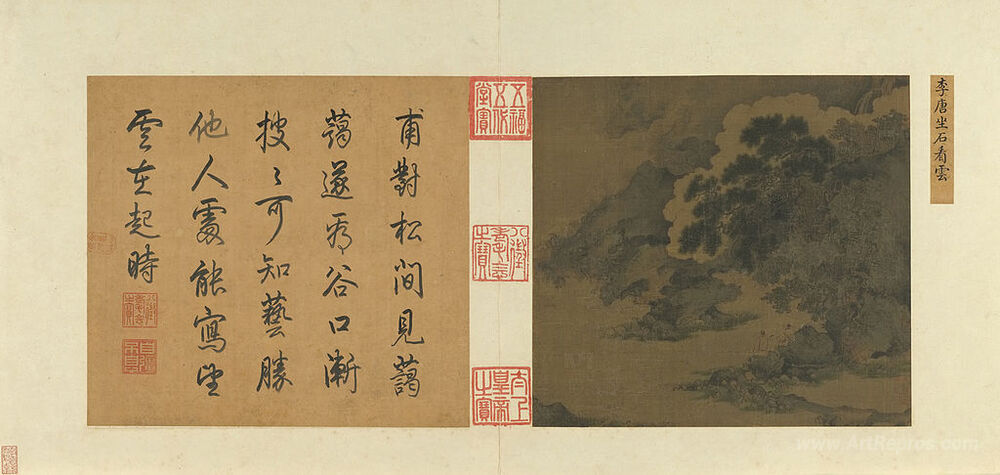 李唐坐石看雲
五福五代堂寶
八徵耄念之寶
太上皇帝之寶
甫對松間見藹
藹遂看谷口漸
披〻可知藝勝
他人處能寫
雲在起時
www.ArtRepros.com